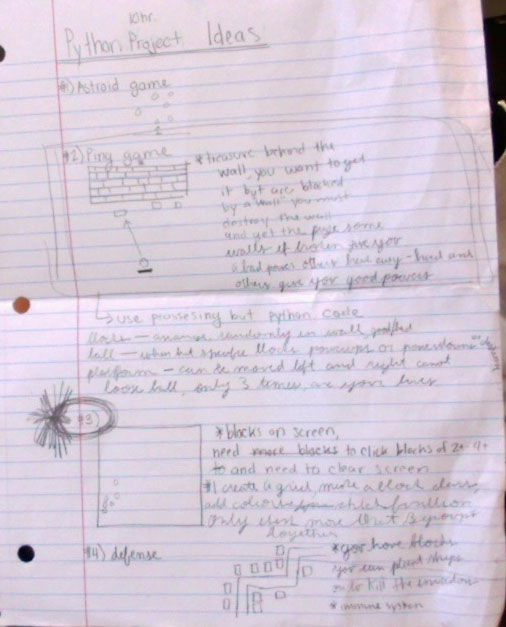 10hr.
Python Project Ideas:
#1) Astroid game
#2) Ping game
* treasure behind the
wall, you want to get
it but are blocked
by a wall you must
destroy the wall
and get the prize some
walls if broken give you
a bad power others have easy-hard and
others give you good powers
use processing but Python code
blocks — arrange randomly in wall,
ball — when hit specific blocks powerups or powerdowns
platform — can be moved left and right cannot
loose ball, only 3 times, are your lives
#3)
* blocks on screen,
need more blocks to click blocks of 2+
to and need to clear screen
#1 create a grid, make a block class,
add colours function
only use more that 3 group
together
#4) defense
* you have blocks
you can plant ships
on to kill the invaders
* immune system